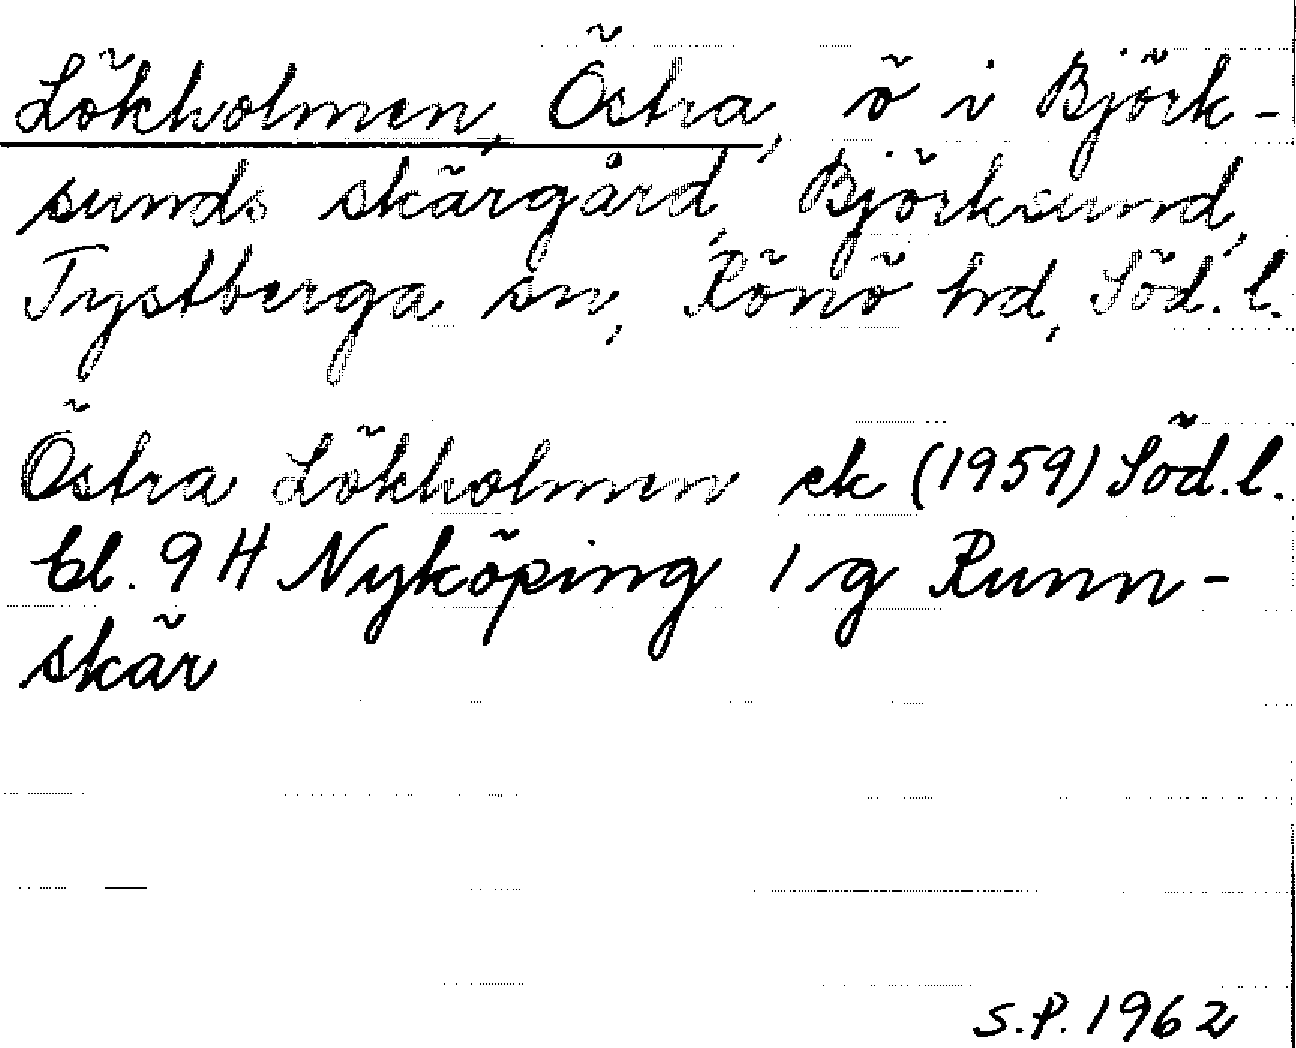 Lökholmen, Östra, ö i Björk-
sunds skärgård, Björksund,
Tystberga sn, Rönö hd, Söd. l.
Östra Lökholmen ek (1959) Söd. l.
bl. 9 H Nyköping 1 g Runn-
skär
S.P. 1962